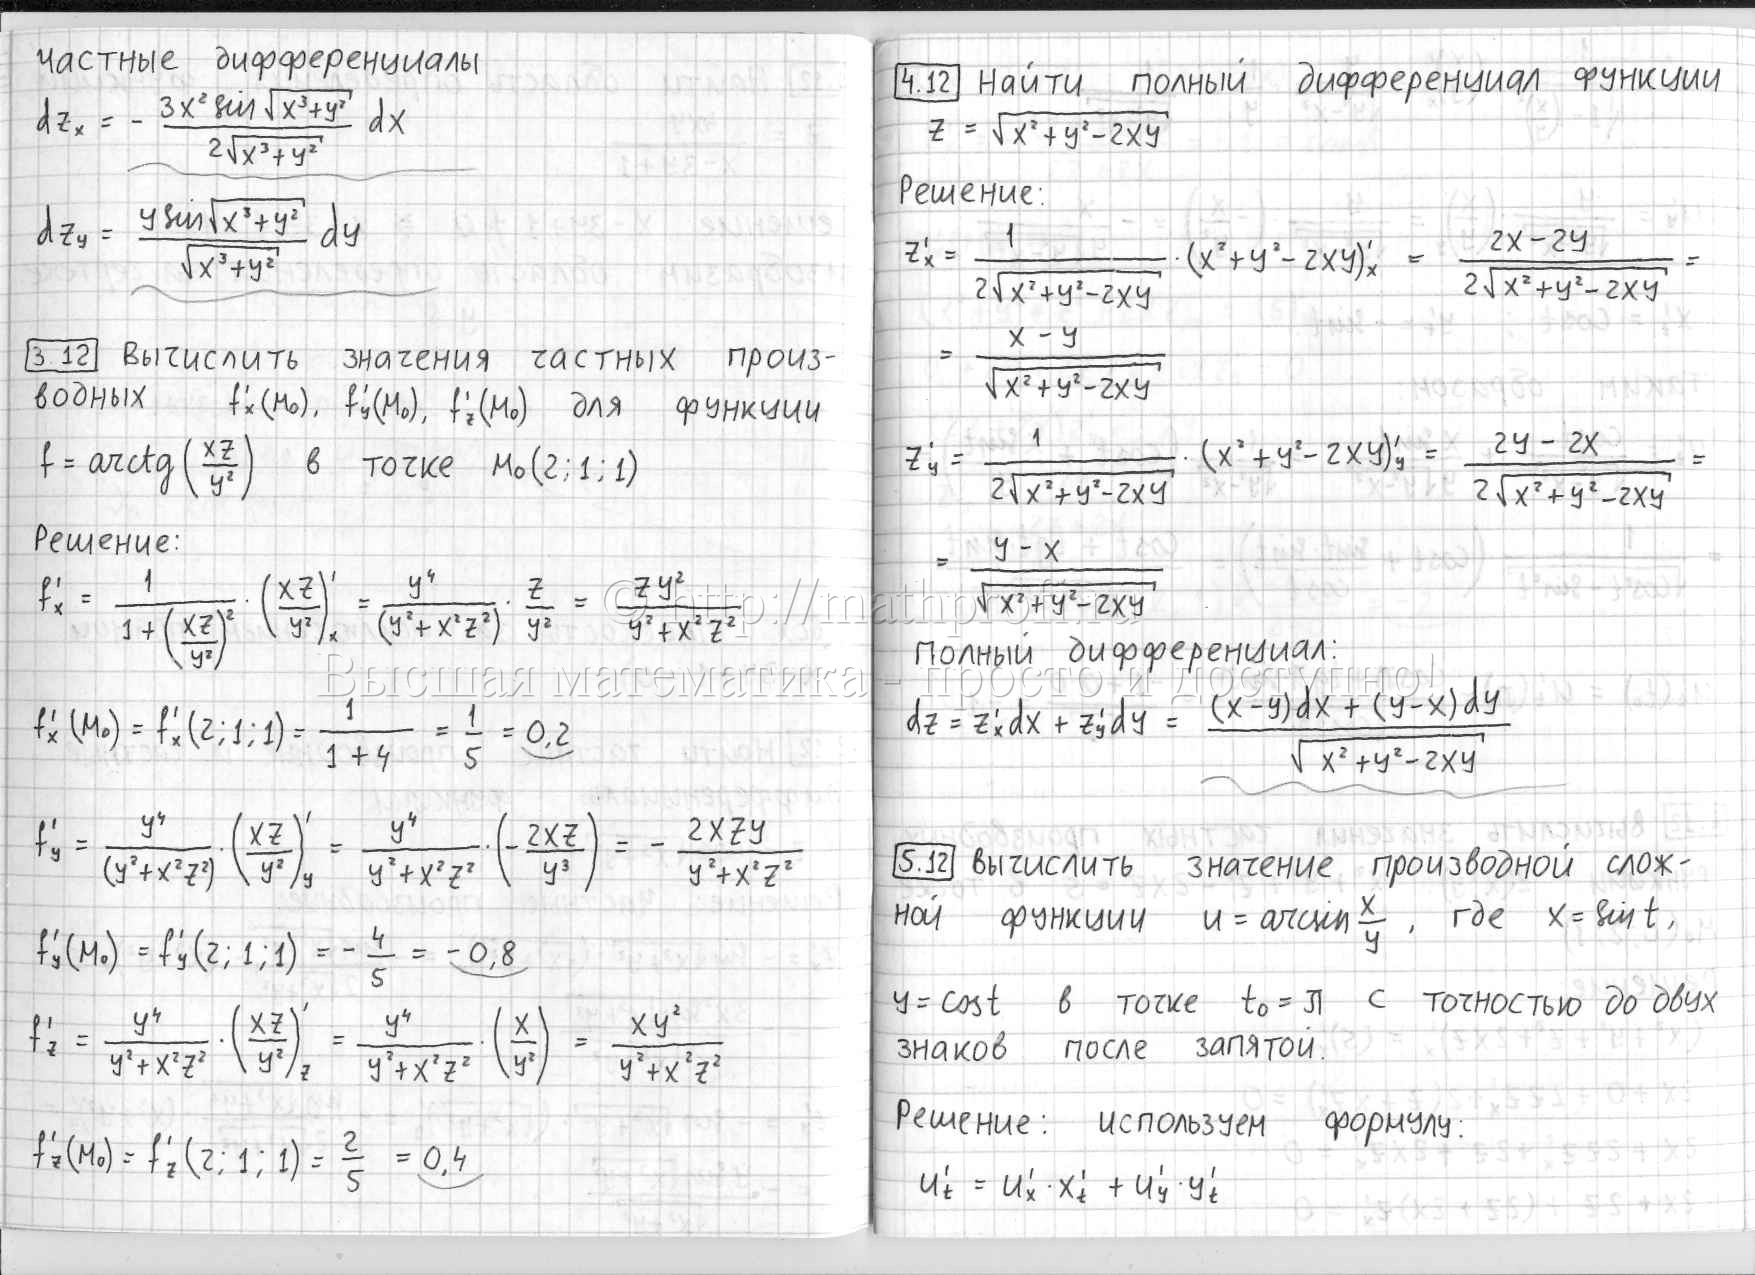 Частные дифференциалы
dz_x = - \frac{3x² sin √(x³+y²)}{2√(x³+y²)} dx
dz_y = \frac{y sin √(x³+y²)}{√(x³+y²)} dy
3.12 Вычислить значения частных произ-
водных f'_x(M₀), f'_y(M₀), f'_z(M₀) для функции
f = arctg(\frac{xz}{y²}) в точке M₀(2; 1; 1)
Решение:
f'_x = \frac{1}{1+(\frac{xz}{y²})²} · (\frac{xz}{y²})'_x = \frac{y⁴}{(y²+x²z²)} · \frac{z}{y²} = \frac{zy²}{y²+x²z²}
f'_x(M₀) = f'_x(2; 1; 1) = \frac{1}{1+4} = \frac{1}{5} = 0,2
f'_y = \frac{y⁴}{(y²+x²z²)} · (\frac{xz}{y²})'_y = \frac{y⁴}{y²+x²z²} · (-\frac{2xz}{y³}) = - \frac{2xzy}{y²+x²z²}
f'_y(M₀) = f'_y(2; 1; 1) = - \frac{4}{5} = -0,8
f'_z = \frac{y⁴}{y²+x²z²} · (\frac{xz}{y²})'_z = \frac{y⁴}{y²+x²z²} · (\frac{x}{y²}) = \frac{xy²}{y²+x²z²}
f'_z(M₀) = f'_z(2; 1; 1) = \frac{2}{5} = 0,4
4.12 Найти полный дифференциал функции
z = √(x²+y²-2xy)
Решение:
z'_x = \frac{1}{2√(x²+y²-2xy)} · (x²+y²-2xy)'_x = \frac{2x-2y}{2√(x²+y²-2xy)} =
= \frac{x-y}{√(x²+y²-2xy)}
z'_y = \frac{1}{2√(x²+y²-2xy)} · (x²+y²-2xy)'_y = \frac{2y-2x}{2√(x²+y²-2xy)} =
= \frac{y-x}{√(x²+y²-2xy)}
Полный дифференциал:
dz = z'_x dx + z'_y dy = \frac{(x-y)dx + (y-x)dy}{√(x²+y²-2xy)}
5.12 Вычислить значение производной слож-
ной функции u = arcsin \frac{x}{y}, где x = sin t,
y = cos t в точке t₀ = π с точностью до двух
знаков после запятой.
Решение: используем формулу:
u'_t = u'_x · x'_t + u'_y · y'_t
© http://mathprofi.ru
Высшая математика - просто и доступно!